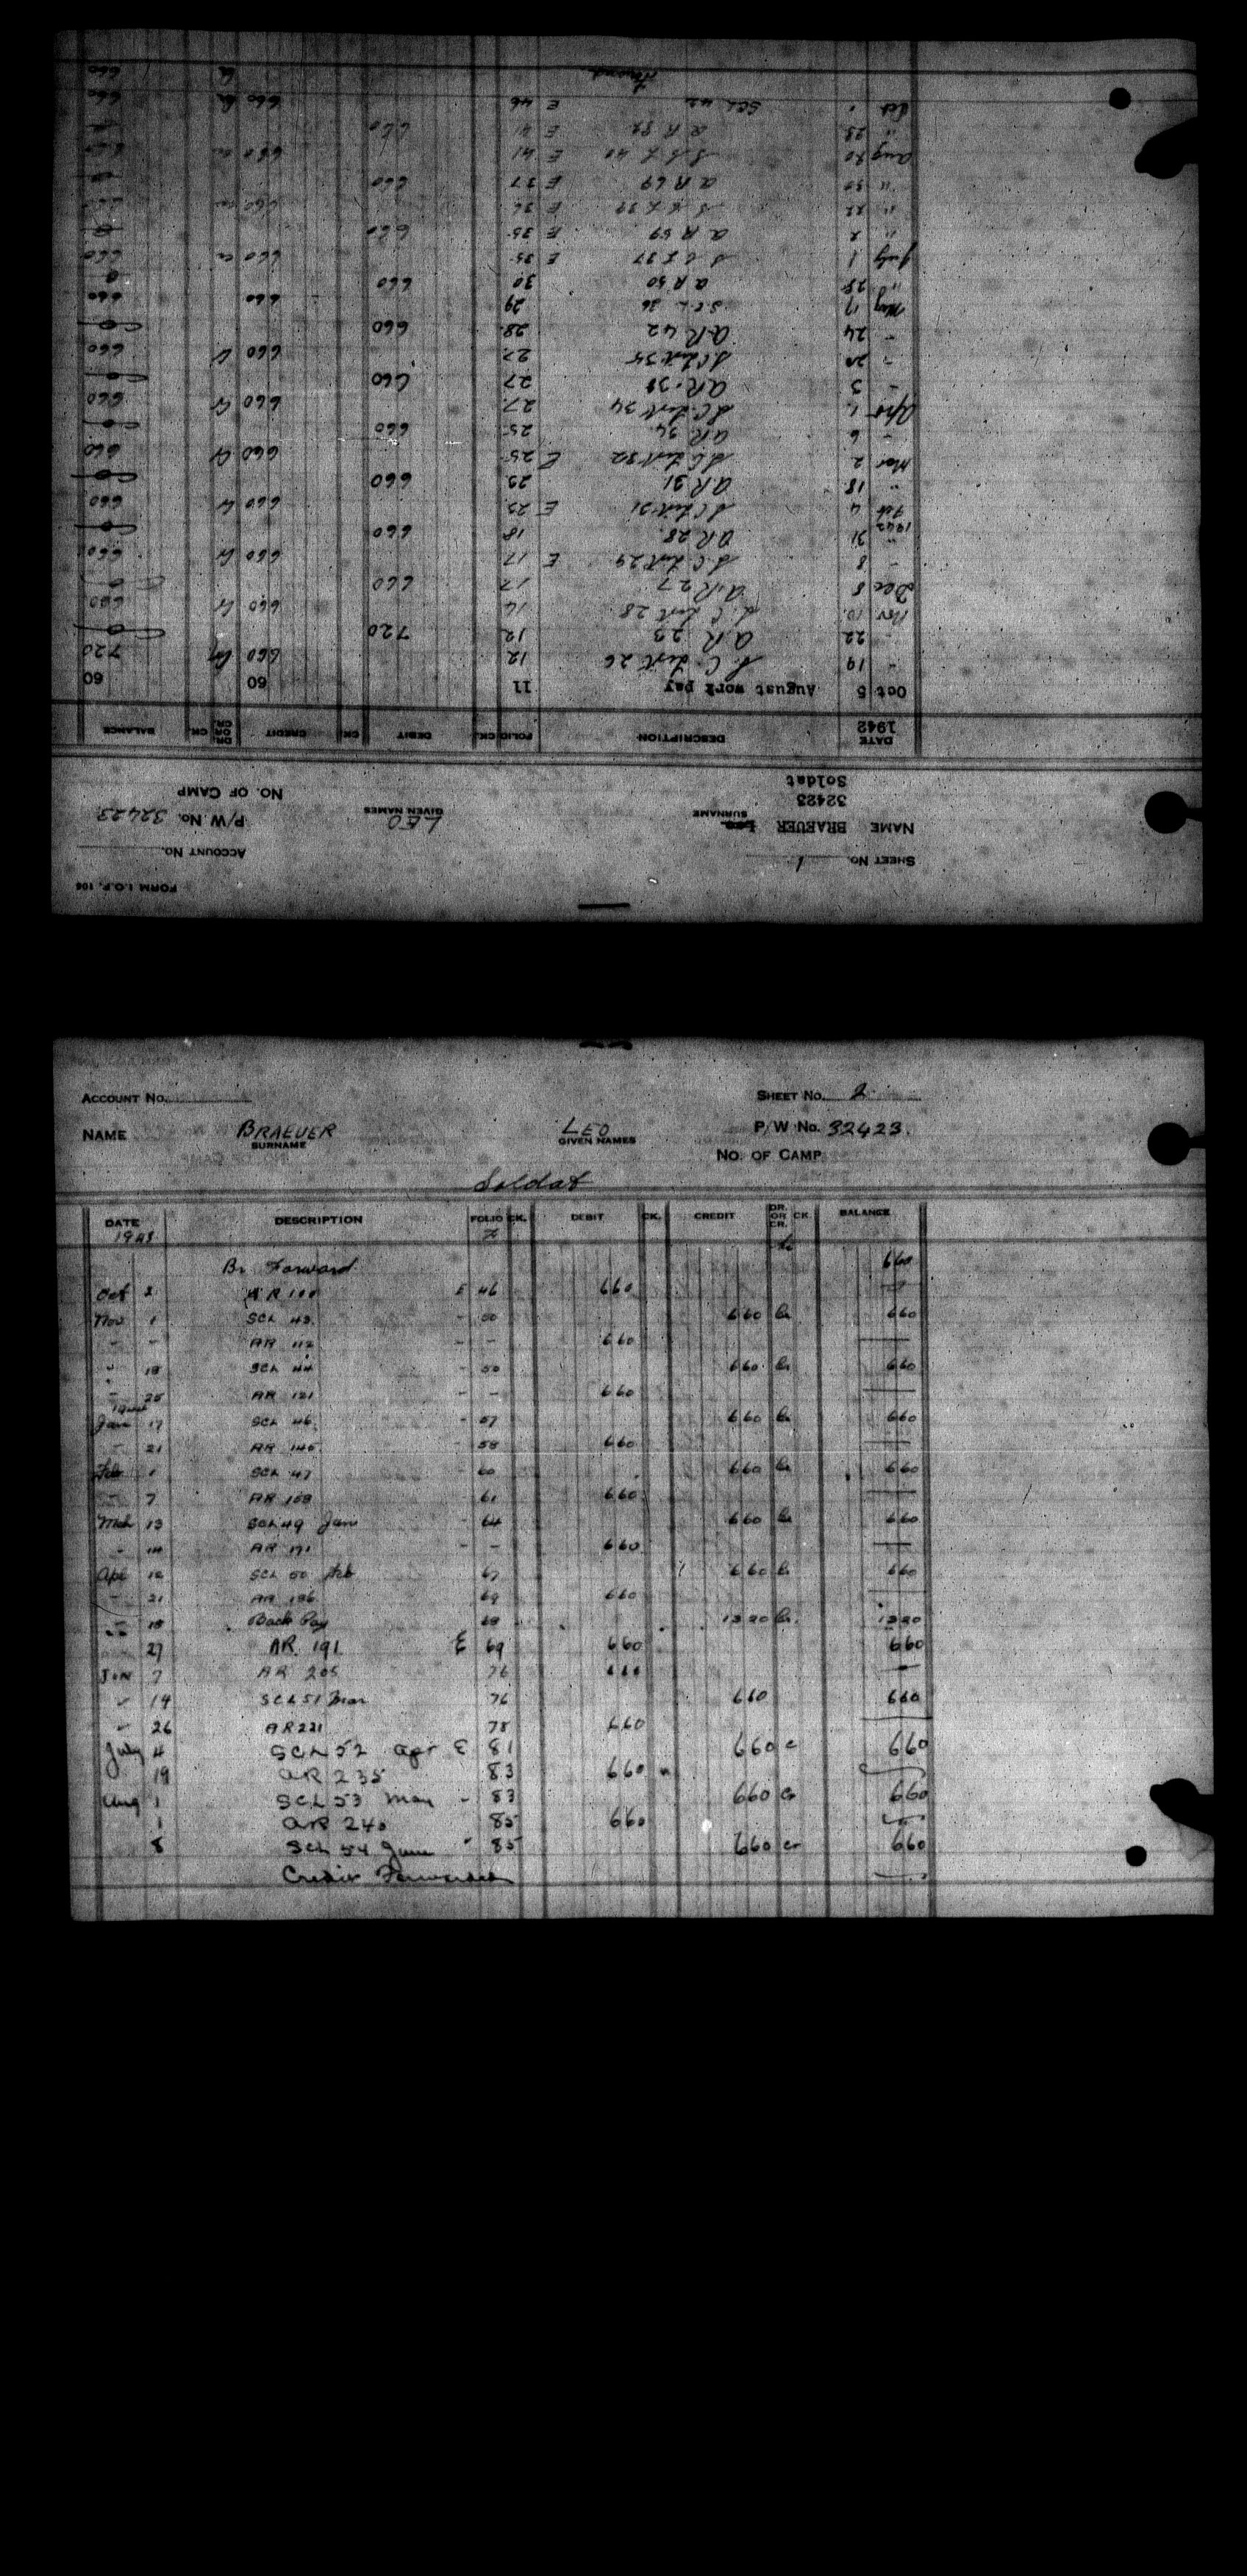 FORM I.O.F. 106
SHEET No. 1 ACCOUNT No.
NAME BRAEUER Leo LEO P/W No. 32423
SURNAME GIVEN NAMES
32423 NO. OF CAMP
Soldat
DATE DESCRIPTION FOLIO CK. DEBIT CK. CREDIT DR. OR CR. CK. BALANCE
1942
Oct 5 August work pay 11 60 60
- 19 S.C. List 26 12 660 Cr 720
- 22 A R 23 12 720 0
Nov 10 S.C. List 28 14 660 Cr 660
Dec 8 A.R. 27 17 660 0
- 8 S.C. List 29 E 17 660 Cr 660
- 31 A R 28 18 660 0
1943
Feb 4 S C List 31 E 23 660 Cr 660
" 18 A R 31 23 660 0
Mar 2 S.C. List 32 E 25 660 Cr 660
- 6 A R 34 25 660 0
Apr 1 S.C. List 34 27 660 Cr 660
- 3 A.R. 38 27 660 0
- 20 S.C. List 35 27 660 Cr 660
- 24 A.R. 42 28 660 0
May 17 S.C.L. 36 29 660 660
" 28 A R 50 30 660 0
July 1 S C L 37 E 35 660 Cr 660
" 2 A R 59 E 35 660
" 22 S C L 39 E 36 660 Cr
" 30 A R 69 E 37 660
Aug 20 S C L 40 E 41 660 Cr
" 28 A R 82 E 41 660
Oct 1 SCL 42 E 46 660 Cr 660
Forward Cr 660
ACCOUNT No. SHEET No. 2
NAME BRAEUER LEO P/W No. 32423.
SURNAME GIVEN NAMES
NO. OF CAMP
Soldat
DATE DESCRIPTION FOLIO CK. DEBIT CK. CREDIT DR. OR CR. CK. BALANCE
1943
Br Forward Cr 660
Oct 2 A R 100 E 46 660
Nov 1 SCL 43 - 50 660 Cr 660
- - AR 112 - - 660
" 18 SCL 44 - 50 660 Cr 660
- 25 AR 121 - - 660
1944
Jan 17 SCL 46 - 57 660 Cr 660
- 21 AR 140 - 58 660
Feb 1 SCL 47 - 60 660 Cr 660
- 7 AR 158 - 61 660
Mch 13 SCL 49 Jan - 64 660 Cr 660
- 14 AR 171 - - 660
Apl 12 SCL 50 Feb 67 660 Cr 660
- 21 AR 186 69 660
- 18 Back Pay 68 1320 Cr. 1320
27 AR. 191. E 69 660 660
Jun 7 AR 205 76 660
" 14 SCL 51 Mar 76 660 660
" 26 AR 221 78 660
July 4 SCL 52 Apr E 81 660 c 660
19 AR 235 83 660
Aug 1 SCL 53 May - 83 660 Cr 660
1 AR 240 85 660
8 SCL 54 June " 85 660 cr 660
Credit Forwarded